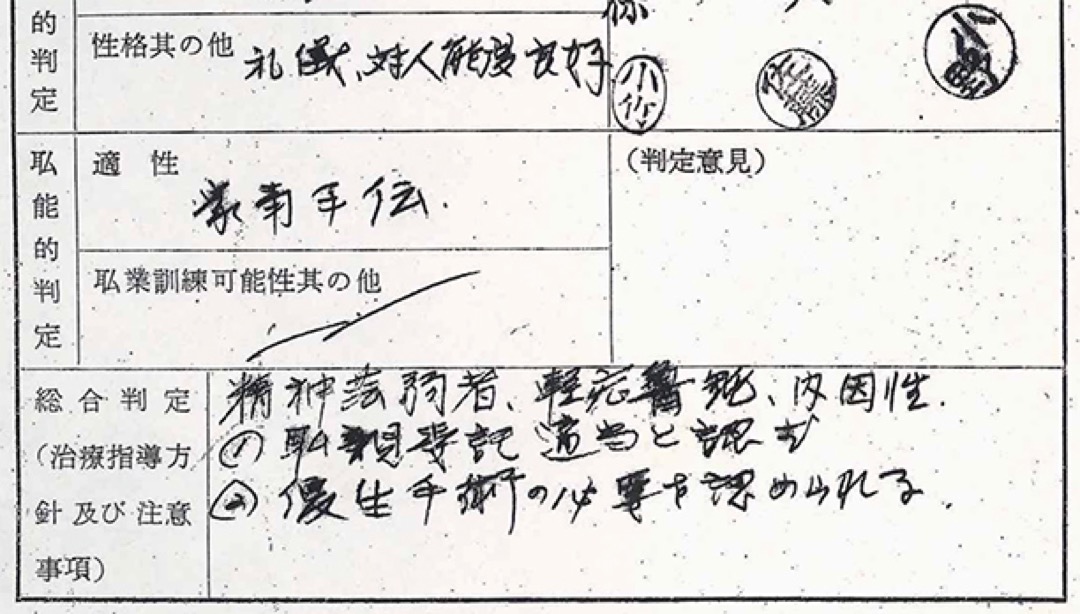 的判定
性格其の他
礼儀、対人態度良好
小竹
耺能的判定
適性
家事手伝.
(判定意見)
耺業訓練可能性其の他
総合判定
(治療指導方
針及び注意
事項)
精神薄弱者、軽症魯鈍、内因性.
(1) 耺親委託適当と認む
(2) 優生手術の必要を認められる.